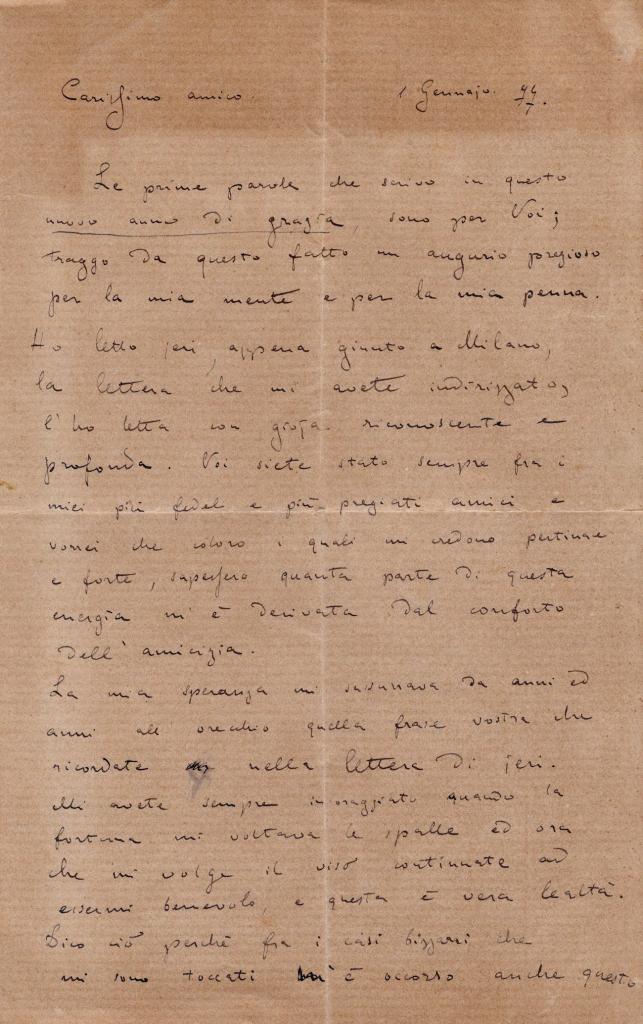 Carissimo amico. 1 Gennajo. 77.
Le prime parole che scrivo in questo
nuovo anno di grazia, sono per Voi;
traggo da questo fatto un augurio prezioso
per la mia mente e per la mia penna.
Ho letto jeri, appena giunto a Milano,
la lettera che mi avete indirizzato,
l'ho letta con gioja riconoscente e
profonda. Voi siete stato sempre fra i
miei più fedel e più pregiati amici e
vorrei che coloro i quali mi credono pertinace
e forte, sapessero quanta parte di questa
energia mi è derivata dal conforto
dell'amicizia.
La mia speranza mi susurrava da anni ed
anni all'orecchio quella frase vostra che
ricordate nella lettera di jeri.
Mi avete sempre incoraggiato quando la
fortuna mi voltava le spalle ed ora
che mi volge il viso continuate ad
essermi benevolo, e questa è vera lealtà.
Dico ciò perchè fra i casi bizzarri che
mi sono toccati è occorso anche questo